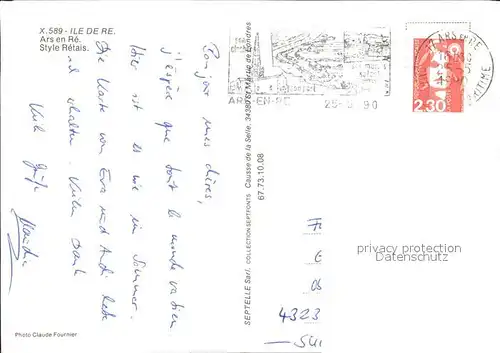 X.589 - ILE DE RE.
Ars en Ré.
Style Rétais.
Bonjour mes chères,
j'espère que tout le monde va bien
Hier ist es wie im Sommer.
Die Karte von Eva und Andi habe
erhalten. Vielen Dank
Viele Grüße
Photo Claude Fournier
SEPTELLE Sarl. COLLECTION SEPTFONTS Causse de la Selle. 34380 St Martin de Londres
67.73.10.08
ARS-EN-RE
25-9 90
2,30
privacy protection
Datenschutz
4323